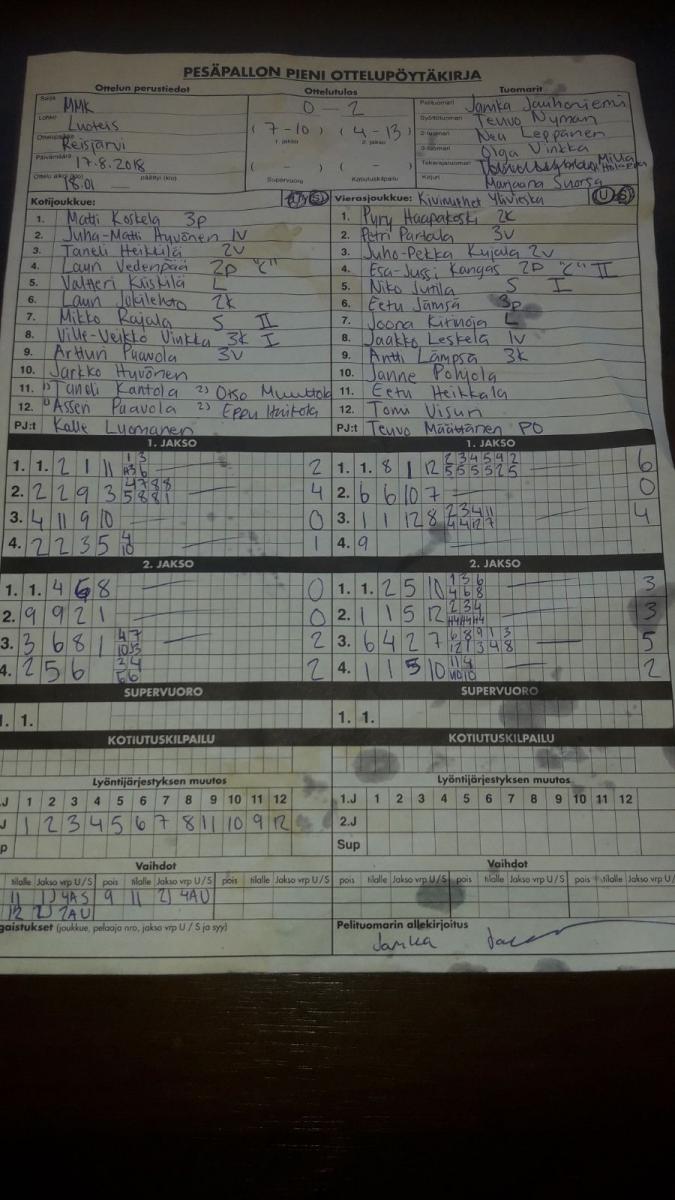 PESÄPALLON PIENI OTTELUPÖYTÄKIRJA
Ottelun perustiedot
Ottelutulos
Tuomarit
Sarja MMK
0 - 2
Pelituomari Jamka Jauhoniemi
Lohko Luoteis
( 7 - 10 ) ( 4 - 13 )
Syöttötuomari Teuvo Nyman
Reisjärvi
1. jakso 2. jakso
2-tuomari Nea Leppänen
Päivämäärä 17.8.2018
( - ) ( - )
3-tuomari Olga Vinkka
Ottelu alkoi (klo) 18.01 päättyi (klo)
Supervuoro Kotiutuskilpailu
Takarajatuomari Milla
Kirjuri Marjaana Suorsa
Kotijoukkue: U/S
Vierasjoukkue: Kivimurhet Ylivieska U S
1. Matti Koskela 3p
1. Pyry Haapakoski 2k
2. Juha-Matti Hyvönen 1v
2. Petri Partala 3v
3. Taneli Heikkilä 2v
3. Juho-Pekka Kujala 2v
4. Lauri Vedenpää 2p "C"
4. Esa-Jussi Kangas 2p "C" II
5. Valtteri Kiiskilä L
5. Niko Jutila S I
6. Lauri Jokilehto 2k
6. Eetu Jämsä 3p
7. Mikko Rajala S II
7. Joona Kirinoja L
8. Ville-Veikko Vinkka 3k I
8. Jaakko Leskela 1v
9. Artturi Paavola 3v
9. Antti Lämpsa 3k
10. Jarkko Hyvönen
10. Janne Pohjola
11. 1) Taneli Kantola 2) Otso Muuttola
11. Eetu Heikkala
12. 1) Asseri Paavola 2) Eppu Huitola
12. Tomi Visuri
PJ:t Kalle Luomanen
PJ:t Teuvo Määttänen PO
1. JAKSO
1. JAKSO
1. 1. 2 1 11 2
1. 1. 8 1 12 6
2. 2 2 9 3 4
2. 6 6 10 7 0
3. 4 11 9 10 0
3. 1 1 12 8 4
4. 2 2 3 5 4 10 1
4. 9
2. JAKSO
2. JAKSO
1. 1. 4 6 8 0
1. 1. 2 5 10 1 3 6 4 6 8 3
2. 9 9 2 1 0
2. 1 1 5 12 2 3 4 3
3. 3 6 8 1 2
3. 6 4 2 7 6 8 9 1 3 12 1 3 4 8 5
4. 2 5 6 2
4. 1 1 5 10 2
SUPERVUORO
SUPERVUORO
1. 1.
1. 1.
KOTIUTUSKILPAILU
KOTIUTUSKILPAILU
Lyöntijärjestyksen muutos
Lyöntijärjestyksen muutos
.J 1 2 3 4 5 6 7 8 9 10 11 12
1.J 1 2 3 4 5 6 7 8 9 10 11 12
J 1 2 3 4 5 6 7 8 11 10 9 12
2.J
p
Sup
Vaihdot
Vaihdot
tilalle Jakso vrp U/S pois tilalle Jakso vrp U/S pois tilalle Jakso vrp U/S
pois tilalle Jakso vrp U/S pois tilalle Jakso vrp U/S pois tilalle Jakso vrp U/
11 1) 4AS 9 11 2) 4AU
12 2) 2AU
gaistukset (joukkue, pelaaja nro, jakso vrp U / S ja syy)
Pelituomarin allekirjoitus
Jamka